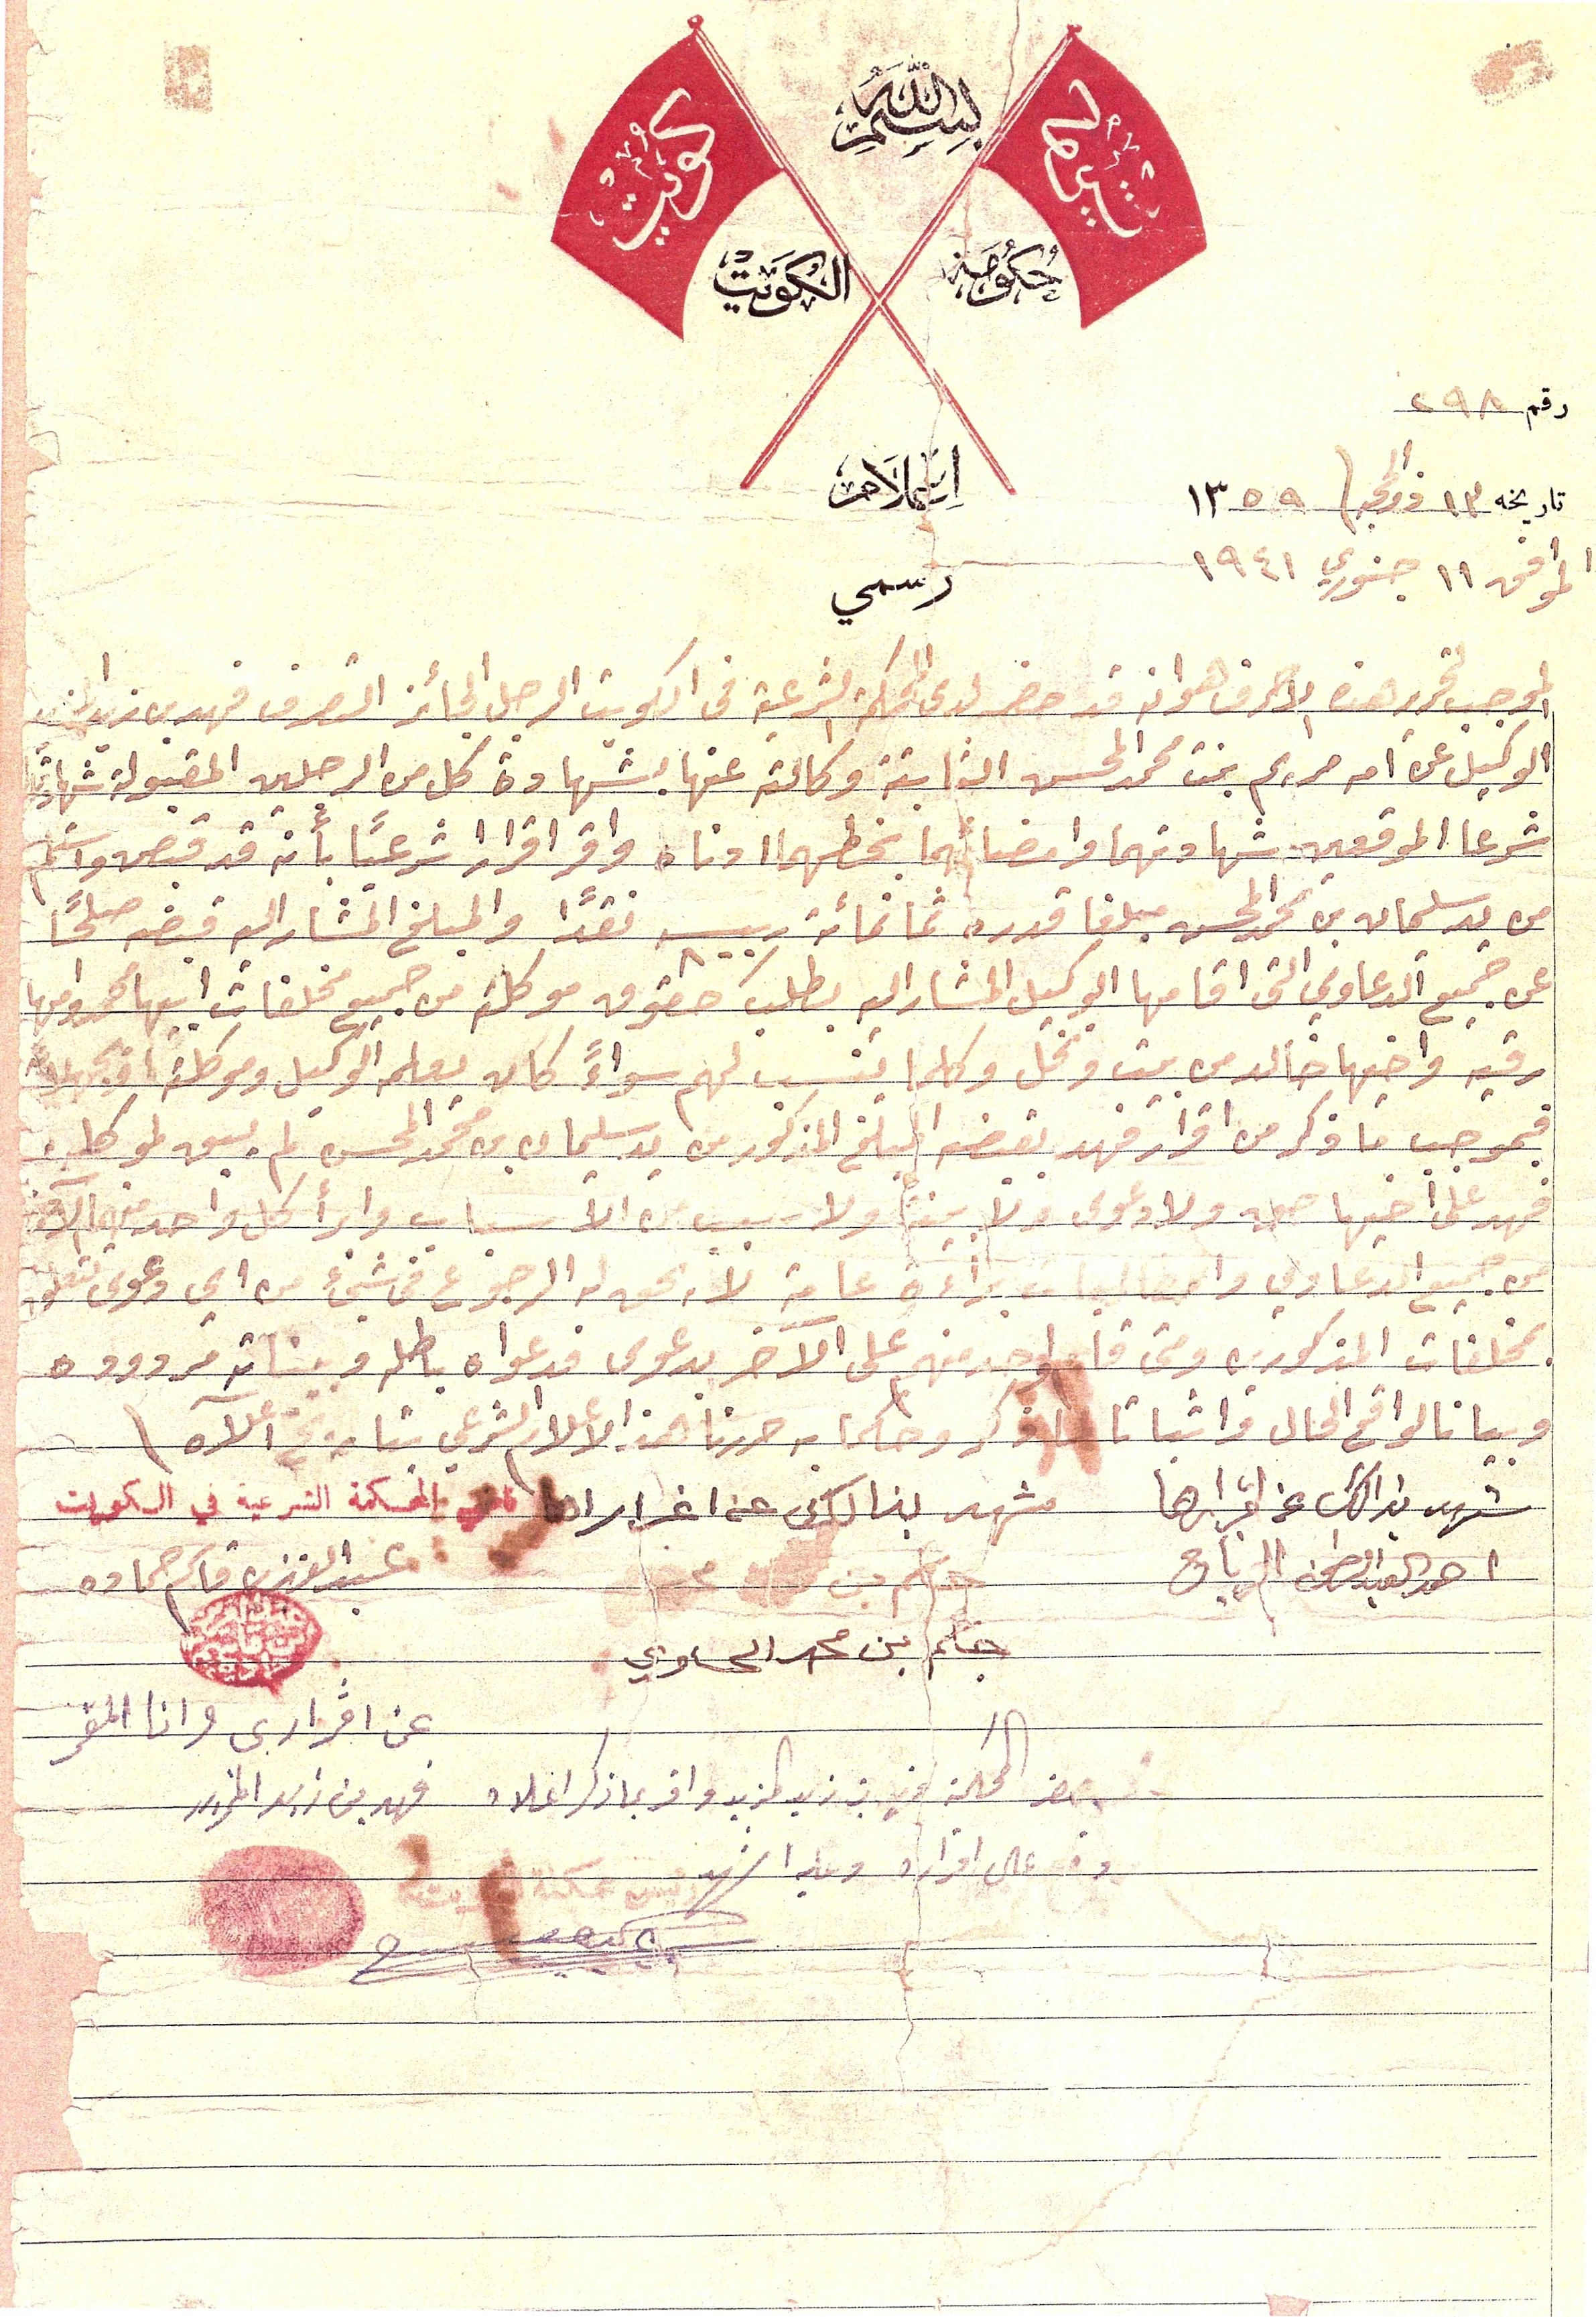 بسم الله
كويت
كويت
حكومة الكويت
إعلام
رسمي
رقم ٢٩٨
تاريخه ١٣ ذو الحجة ١٣٥٩
الموافق ١١ جنوري ١٩٤١
الموجب لتحرير هذه الاحرف هو انه قد حضر لدى المحكمة الشرعية في الكويت الرجل الجائز التصرف فهد بن زيد
الوكيل عن امه مريم بنت محمد المحسن الثابتة وكالته عنها بشهادة كل من الرجلين المقبولة شهادتهما
شرعا الموقعين شهادتهما وامضائهما بخطهما ادناه واقر اقرارا شرعيًا بأنه قد قبض واستلم
من يد سليمان بن محمد المحسن مبلغا قدره ثمانمائة ربيه نقدًا والمبلغ المشار اليه قبضه صلحًا
عن جميع الدعاوي التي اقامها الوكيل المشار اليه بطلب حقوق موكلته من جميع مخلفات ابيها محمد وامها
رقيه واخيها خالد من بيت ونخل وكلما ينتسب لهم سواءً كان يعلمه الوكيل وموكلته او يجهلانه
فبموجب ما ذكر من اقرار فهد بقبضه المبلغ المذكور من يد سليمان بن محمد المحسن لم يبق لموكلة
فهد على اخيها حق ولا دعوى ولا بينة ولا سبب من الاسباب وابرأ كل واحد منهم الآخر
من جميع الدعاوي والمطالبات براءة عامة لا يحق له الرجوع في شيئ من اي دعوى تتعلق
بمخلفات المذكورين ومتى قام واحد منهم على الآخر بدعوى فدعواه باطله وبيناته مردوده
وبيانا لواقع الحال واثباتا لما ذكر وحكما به حررنا هذا الاعلام الشرعي بتاريخ اعلاه
شهد بذالك عن اقرارها
احمد العبد اللطيف
شهد بذالك عن اقرارها
جاسم بن
جاسم بن محمد الحساوي
قاضي المحكمة الشرعية في الكويت
عبد العزيز قاسم حماده
عن اقراري وانا المقر
فهد بن زيد المزيد
حضر المحكمة فهد بن زيد المزيد واقر بما ذكر اعلاه
وقع على اقراره وعليه اشهد
رئيس محكمة الكويت